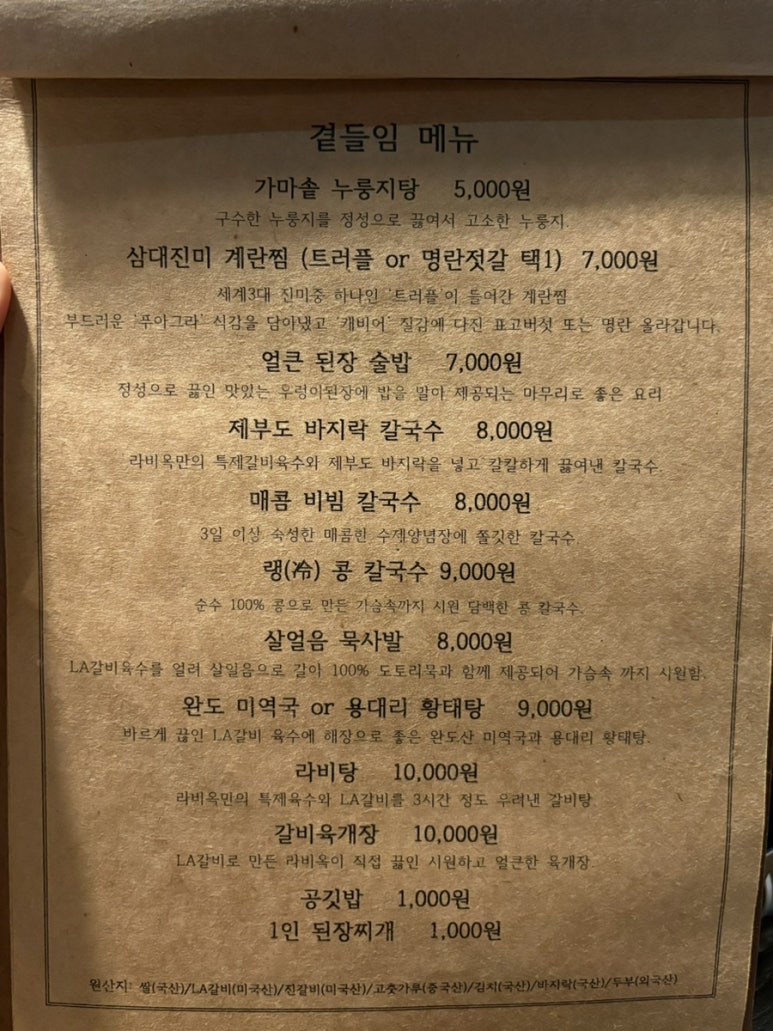 곁들임 메뉴
가마솥 누룽지탕 5,000원
구수한 누룽지를 정성으로 끓여서 고소한 누룽지.
삼대진미 계란찜 (트러플 or 명란젓갈 택1) 7,000원
세계3대 진미중 하나인 '트러플'이 들어간 계란찜
부드러운 '푸아그라' 식감을 담아냈고 '캐비어' 질감에 다진 표고버섯 또는 명란 올라갑니다.
얼큰 된장 술밥 7,000원
정성으로 끓인 맛있는 우렁이된장에 밥을 말아 제공되는 마무리로 좋은 요리
제부도 바지락 칼국수 8,000원
라비옥만의 특제갈비육수와 제부도 바지락을 넣고 칼칼하게 끓여낸 칼국수.
매콤 비빔 칼국수 8,000원
3일 이상 숙성한 매콤한 수제양념장에 쫄깃한 칼국수.
랭(冷) 콩 칼국수 9,000원
순수 100% 콩으로 만든 가슴속까지 시원 담백한 콩 칼국수.
살얼음 묵사발 8,000원
LA갈비육수를 얼려 살얼음으로 갈아 100% 도토리묵과 함께 제공되어 가슴속 까지 시원함.
완도 미역국 or 용대리 황태탕 9,000원
바르게 끓인 LA갈비 육수에 해장으로 좋은 완도산 미역국과 용대리 황태탕.
라비탕 10,000원
라비옥만의 특제육수와 LA갈비를 3시간 정도 우려낸 갈비탕.
갈비육개장 10,000원
LA갈비로 만든 라비옥이 직접 끓인 시원하고 얼큰한 육개장.
공깃밥 1,000원
1인 된장찌개 1,000원
원산지: 쌀(국산)/LA갈비(미국산)/진갈비(미국산)/고춧가루(중국산)/김치(국산)/바지락(국산)/두부(외국산)